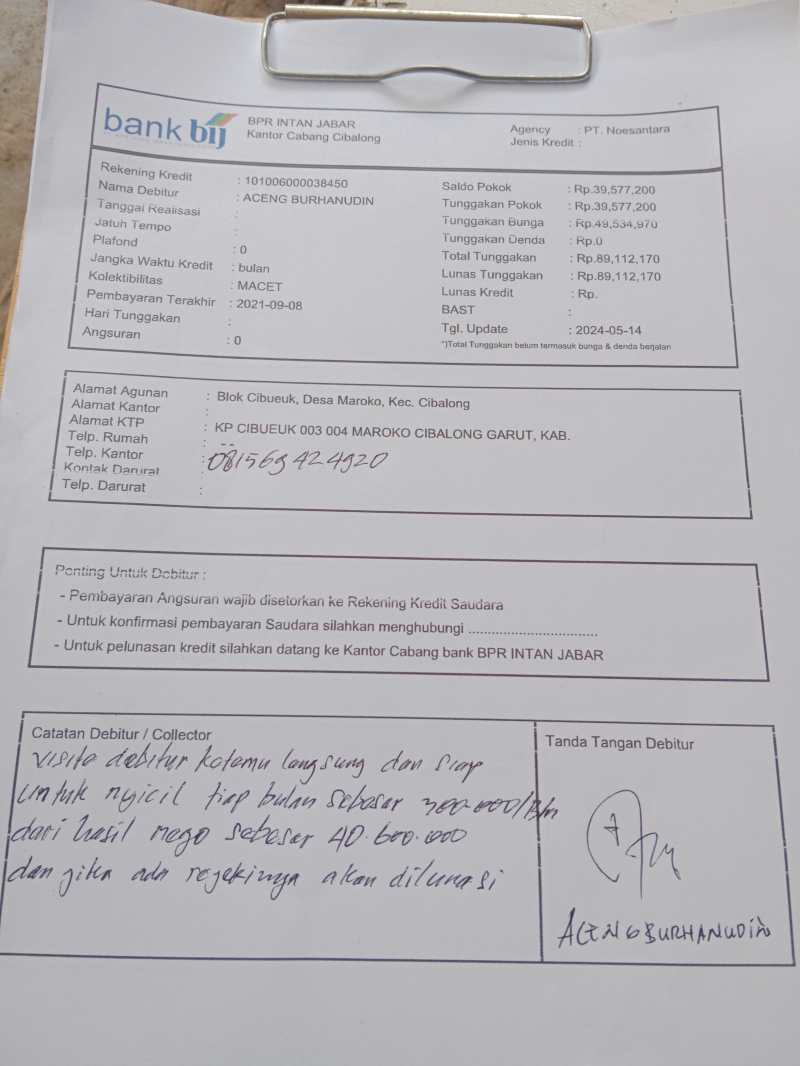 bank bij
BPR INTAN JABAR
Kantor Cabang Cibalong
Agency : PT. Noesantara
Jenis Kredit :
Rekening Kredit : 101006000038450
Nama Debitur : ACENG BURHANUDIN
Tanggal Realisasi :
Jatuh Tempo :
Plafond : 0
Jangka Waktu Kredit : bulan
Kolektibilitas : MACET
Pembayaran Terakhir : 2021-09-08
Hari Tunggakan :
Angsuran : 0
Saldo Pokok : Rp.39,577,200
Tunggakan Pokok : Rp.39,577,200
Tunggakan Bunga : Rp.49,534,970
Tunggakan Denda : Rp.0
Total Tunggakan : Rp.89,112,170
Lunas Tunggakan : Rp.89,112,170
Lunas Kredit : Rp.
BAST :
Tgl. Update : 2024-05-14
*)Total Tunggakan belum termasuk bunga & denda berjalan
Alamat Agunan : Blok Cibueuk, Desa Maroko, Kec. Cibalong
Alamat Kantor :
Alamat KTP : KP CIBUEUK 003 004 MAROKO CIBALONG GARUT, KAB.
Telp. Rumah : --
Telp. Kantor : 081569424920
Kontak Darurat
Telp. Darurat :
Penting Untuk Debitur :
- Pembayaran Angsuran wajib disetorkan ke Rekening Kredit Saudara
- Untuk konfirmasi pembayaran Saudara silahkan menghubungi ................................
- Untuk pelunasan kredit silahkan datang ke Kantor Cabang bank BPR INTAN JABAR
Catatan Debitur / Collector
visita debitur ketemu langsung dan siap
untuk nyicil tiap bulan sebesar 300.000/Bln
dari hasil nego sebesar 40.600.000
dan jika ada rejekinya akan dilunasi
Tanda Tangan Debitur
ACENG BURHANUDIN